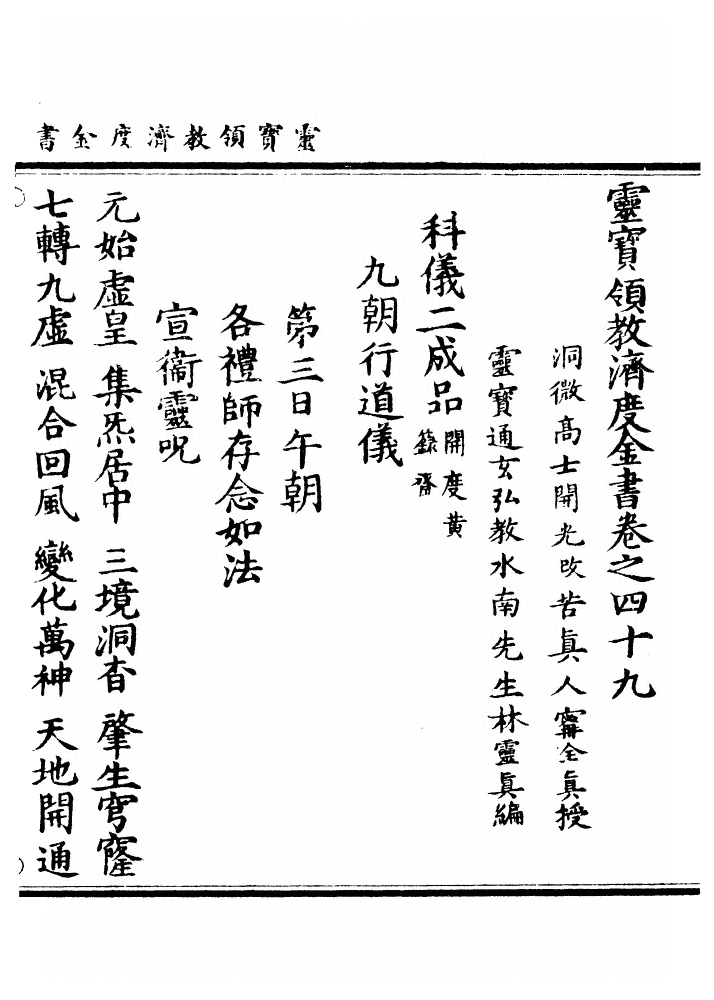 靈寶領教濟度金書
靈寶領教濟度金書卷之四十九
洞微高士開光救苦眞人寗全眞授
靈寶通玄弘教水南先生林靈眞編
科儀二成品開度黃籙齋
九朝行道儀
第三日午朝
各禮師存念如法
宣衞靈呪
元始虛皇 集炁居中 三境洞杳 肇生穹窿
七轉九虛 混合回風 變化萬神 天地開通